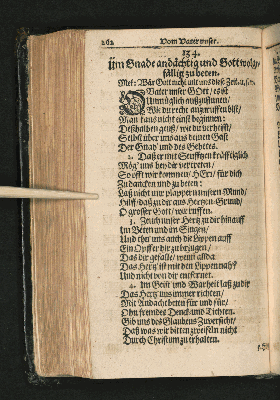 262 Vom Vater unser.
134.
Um Gnade andächtig und Gott wolge-
fällig zu beten.
Mel: Wär Gott nicht mit uns diese Zeit, u.s.w.
O Vater unser GOtt, es ist
Unmüglich außzusinnen,
Wie du recht anzuruffen bist,
Man kans nicht einst beginnen:
Deßhalben geuß, wie du verheißt,
Selbst über uns aus deinen Geist
Der Gnad' und des Gebetes.
2. Daß er mit Seufftzen kräfftiglich
Mög' uns bey dir vertreten,
So offt wir kommen, HErr, für dich
Zu dancken und zu beten:
Laß nicht nur plappern unsern Mund,
Hilff, daß zu dir aus Hertzen-Grund,
O grosser Gott, wir ruffen.
3. Zeuch unser Hertz zu dir hinauff
Im Beten und im Singen,
Und thu uns auch die Lippen auff
Ein Opffer dir zu bringen,
Das dir gefalle, wenn allda
Das Hertz ist mit den Lippen nah,
Und nicht von dir entfernet.
4. Im Geist und Warheit laß zu dir
Das Hertz uns immer richten,
Mit Andacht beten für und für,
Ohn frembdes Denck- und Tichten.
Gib uns des Glaubens Zuversicht,
Daß was wir bitten zweifeln nicht
Durch Christum zu erhalten.